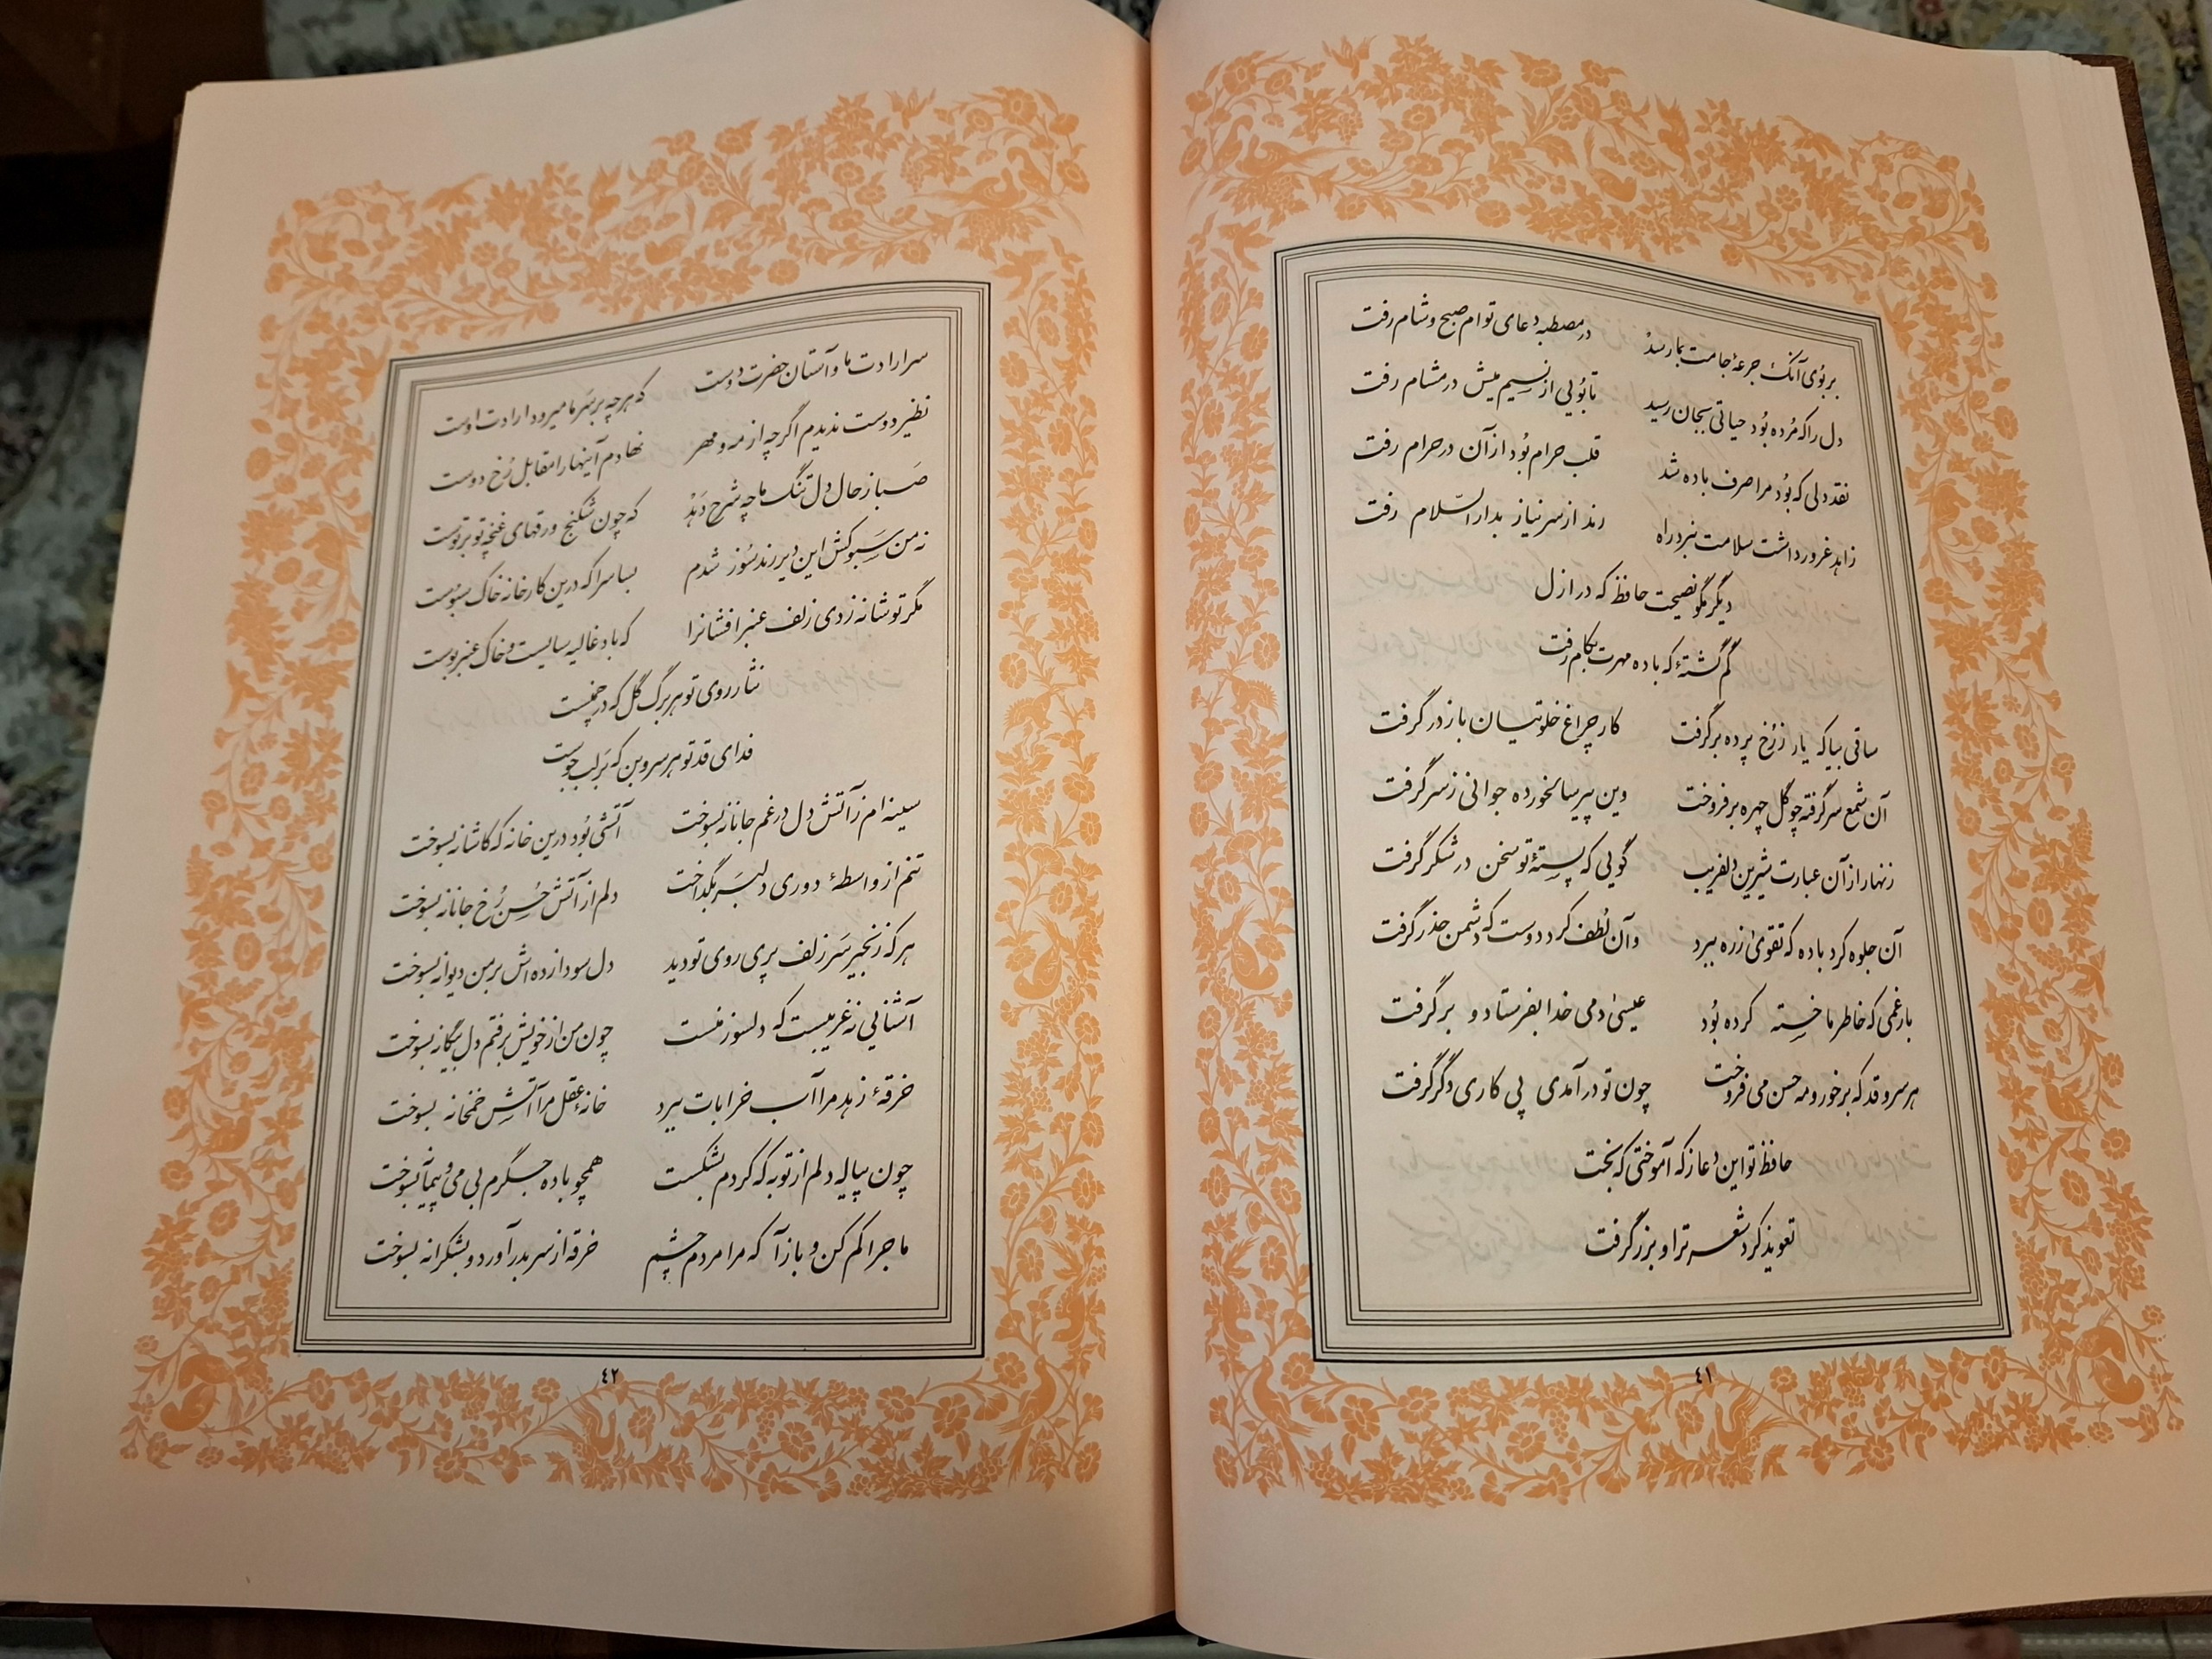 بر بوی آنک جرعهٔ جامت بما رسد در مصطبه دعای تو ام صبح و شام رفت
دل را که مُرده بُود حیاتی بجان رسید تا بُویی از نسیم میش در مشام رفت
نقد دلی که بُود مرا صرف باده شد قلب حرام بُود از آن در حرام رفت
زاهد غرور داشت سلامت نبرد راه رند از سر نیاز بدار السّلام رفت
دیگر مگو نصیحت حافظ که در ازل
گم گشتهٔ که باده مهرت بکام رفت
ساقی بیا که یار ز رُخ پرده بر گرفت کار چراغ خلوتیان باز در گرفت
آن شمع سر گرفته چو گل چهره بر فروخت وین پیر سالخورده جوانی ز سر گرفت
زنهار از آن عبارت شیرین دلفریب گویی که پستهٔ تو سخن در شکر گرفت
آن جلوه کرد باده که تقوی ز ره ببرد وآن لُطف کرد دوست که دشمن حذر گرفت
بار غمی که خاطر ما خسته کرده بُود عیسیٰ دمی خدا بفرستاد و بر گرفت
هر سرو قد که بر خور و مه حسن می فروخت چون تو در آمدی پی کاری دگر گرفت
حافظ تو این دعا ز که آموختی که بخت
تعویذ کرد شعر ترا و بزر گرفت
٤١
سر ارادت ما و آستان حضرت دوست که هر چه بر سَر ما میرود ارادت اوست
نظیر دوست ندیدم اگر چه از مه و مهر نهادم آینها را مقابل رُخ دوست
صَبا ز حال دل تنگ ما چه شرح دَهد که چون شکنج ورقهای غنچه تو بر توست
نه من سَبو کش این دیر رند سُوز شدم بسا سرا که درین کارخانه خاک سبوست
مگر تو شانه زدی زلف عنبر افشانرا که باد غالیه سایست و خاک عنبر بوست
نثار روی تو هر برگ گل که در چمنست
فدای قد تو هر سروبن که بَر لب جوست
سینه ام ز آتش دل در غم جانانه بسوخت آتشی بُود درین خانه که کاشانه بسوخت
تنم از واسطهٔ دوری دلبَر بگداخت دلم از آتش حُسن رُخ جانانه بسوخت
هر که زنجیر سَر زلف پری روی تو دید دل سودا زده اش بر من دیوانه بسوخت
آشنایی نه غریبست که دلسوز منست چون من از خویش برفتم دل بیگانه بسوخت
خرقهٔ زهد مرا آب خرابات ببرد خانهٔ عقل مرا آتش خمخانه بسوخت
چون پیاله دلم از توبه که کردم بشکست همچو باده جگرم بی می و پیمانه بسوخت
ماجرا کم کن و باز آ که مرا مردم چشم خرقه از سر بدر آورد و بشکرانه بسوخت
٤٢